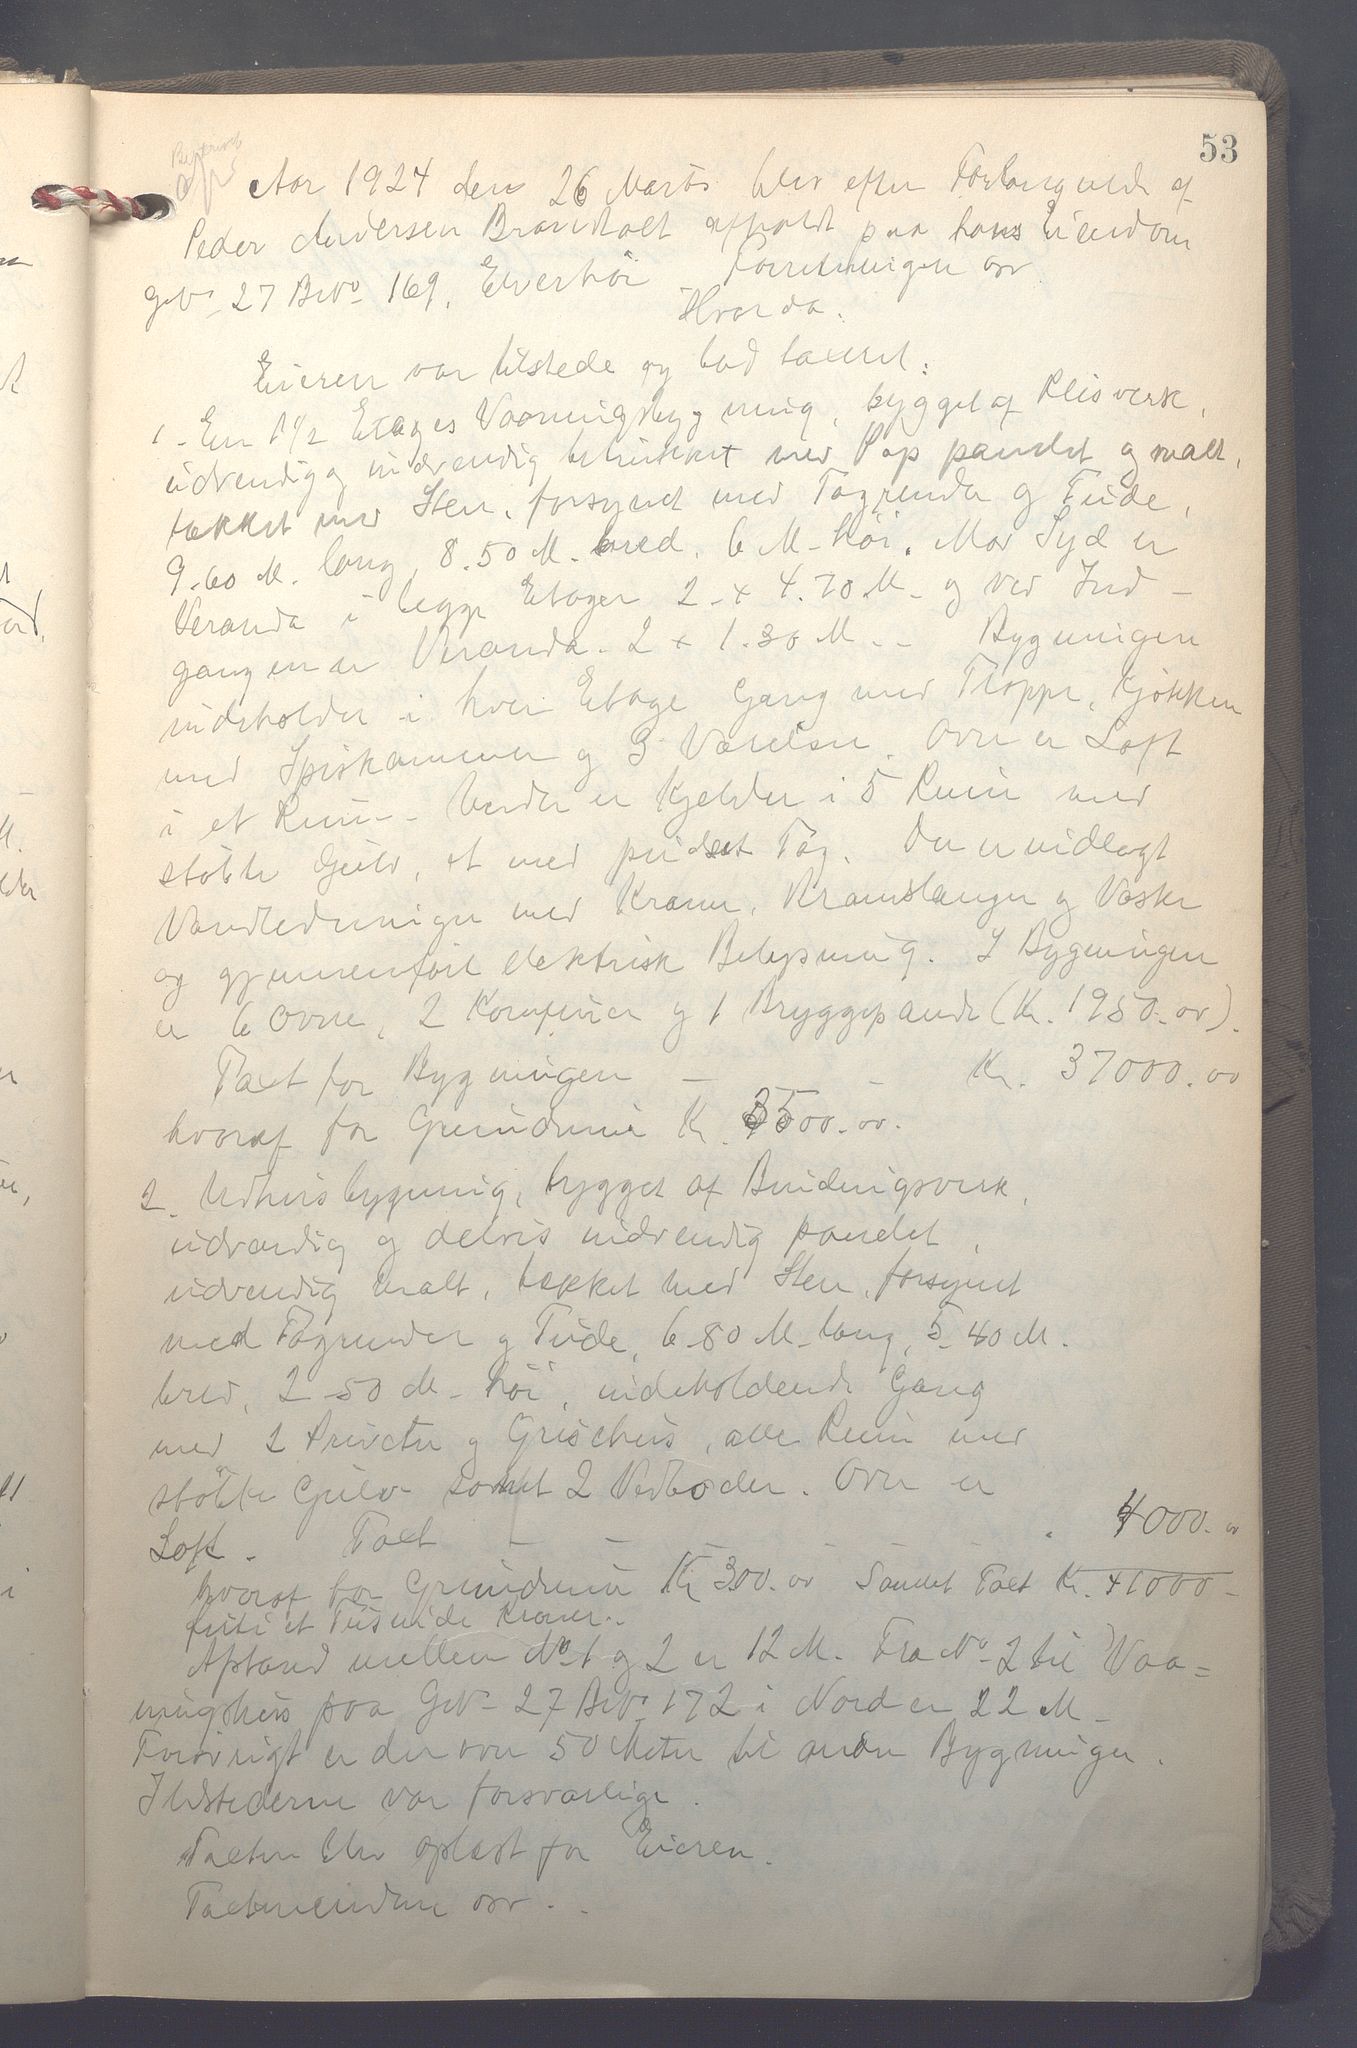 53
Aar 1924 den 26 Marts blev efter Forlangende af
Peder Andersen Brandtoft afholdt paa hans Eiendom
GNo 27 BNo 169, Elverhöi Forretningen osv
Hvorda:
Eieren var tilstede og bad taxeret:
1. En 1 1/2 Etages Vaaningsbygning, bygget af Reisverk,
udvendig og indvendig betrukket med Pap panelet og malt,
tækket med Sten, forsynet med Tagrender og Tude,
9.60 M. lang, 8.50 M. bred, 6 M. höi. Mod Syd er
Veranda i begge Etager 2 x 4.70 M. og ved Ind-
gangen er Veranda 2 x 1.30 M. - Bygningen
indeholder i hver Etage Gang med Trappe, Kjökken
med Spiskammer og 3 Værelser. Over er Loft
i et Rum. Under er Kjelder i 5 Rum med
stöbte Gulv, et med pudset Tag. Der er indlagt
Vandledninger med Kraner, Kranslanger og Vaske
og gjennemfört elektrisk Belysning. I Bygningen
er 6 Ovne, 2 Komfurer og 1 Bryggepande (Kr. 1950.00).
Taxt for Bygningen - - Kr. 37000.00
hvoraf for Grundmur Kr. 3500.00.
2. Udhusbygning, bygget af Bindingsverk,
udvendig og delvis indvendig panelet,
udvendig malt, tækket med Sten, forsynet
med Tagrender og Tude, 6.80 M. lang, 5.40 M.
bred, 2.50 M. höi, indeholdende Gang
med 2 Priveter og Grisehus, alle Rum med
stöbte Gulv samt 2 Vedboder. Over er
Loft. Taxt - - - - 4000.00
hvoraf for Grundmur Kr 300.00 Samlet Taxt Kr. 41000-
firti et Tusinde Kroner.
Afstand mellem No 1 og 2 er 12 M. Fra No 2 til Vaa-
ningshus paa GNo 27 BNo 172 i Nord er 22 M.
Forövrigt er der over 50 Meter til andre Bygninger.
Ildstederne var forsvarlige.
Taxten blev oplæst for Eieren.
Taxtmendene osv.